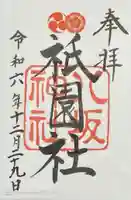 奉拝
八坂神社
祇園社
令和六年十二月二十九日